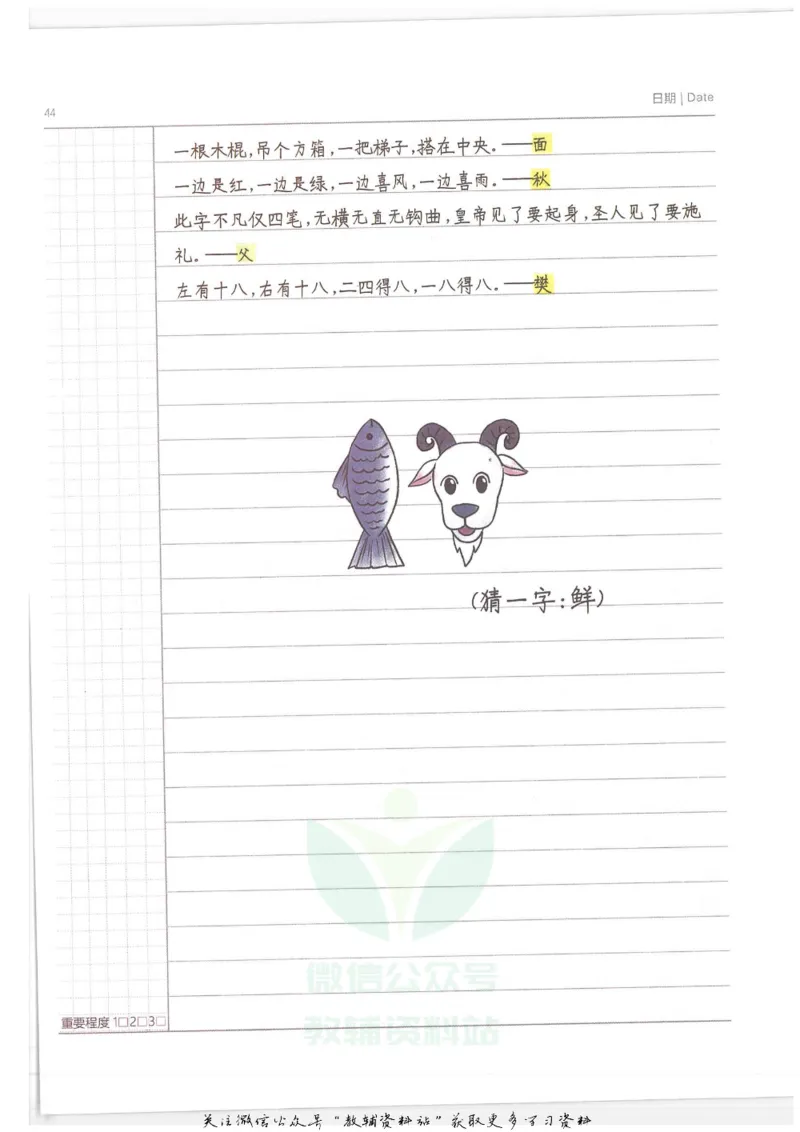 日期 | Date
44
一根木棍,吊个方箱,一把梯子,搭在中央。——面
一边是红,一边是绿,一边喜风,一边喜雨。——秋
此字不凡仅四笔,无横无直无钩曲,皇帝见了要起身,圣人见了要施
礼。——父
左有十八,右有十八,二四得八,一八得八。——樊
(猜一字:鲜)
微信公众号
教辅资料站
重要程度 1□2□3□
关注微信公众号“教辅资料站”获取更多学习资料